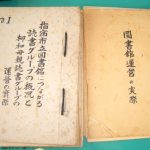 No.1
指宿市立図書館につながる
読書グループの概況と
柳和母親読書グループの
運営の実際
図書館運営の実際